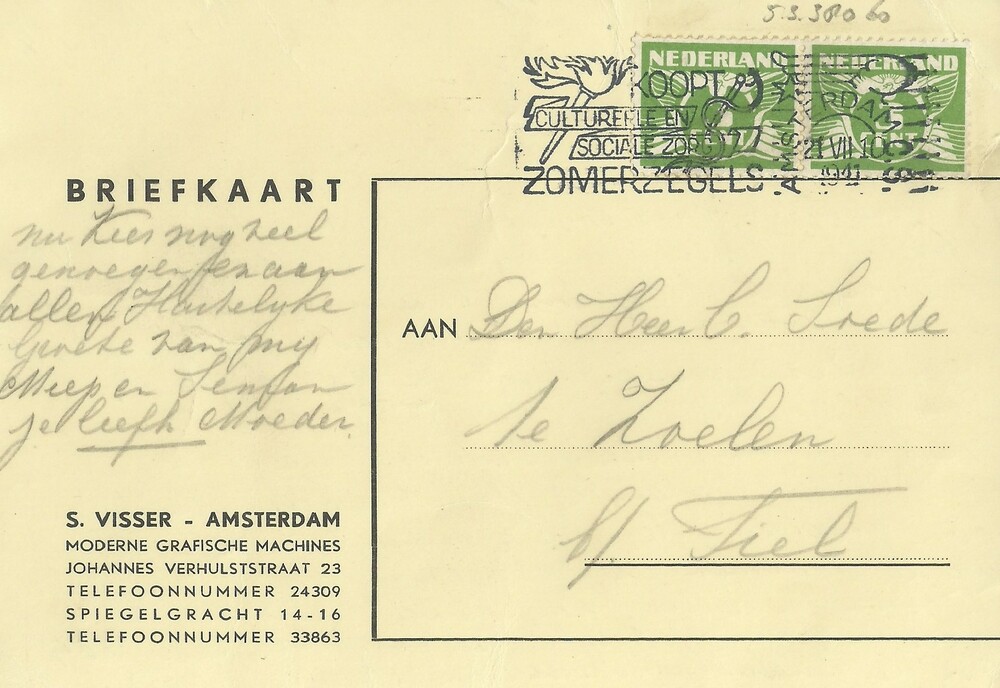 5.3.380 60
NEDERLAND NEDERLAND
KOOPT
CULTUREELE EN
SOCIALE ZORG
ZOMERZEGELS
AMSTERDAM
21 VII 10
1941
BRIEFKAART
nu Kees nog veel
genoegen en aan
allen Hartelyke
Groete van my
Miep en
je liefh Moeder
AAN Den Heer C. Soede
te Zoelen
b/ Tiel
S. VISSER - AMSTERDAM
MODERNE GRAFISCHE MACHINES
JOHANNES VERHULSTSTRAAT 23
TELEFOONNUMMER 24309
SPIEGELGRACHT 14-16
TELEFOONNUMMER 33863